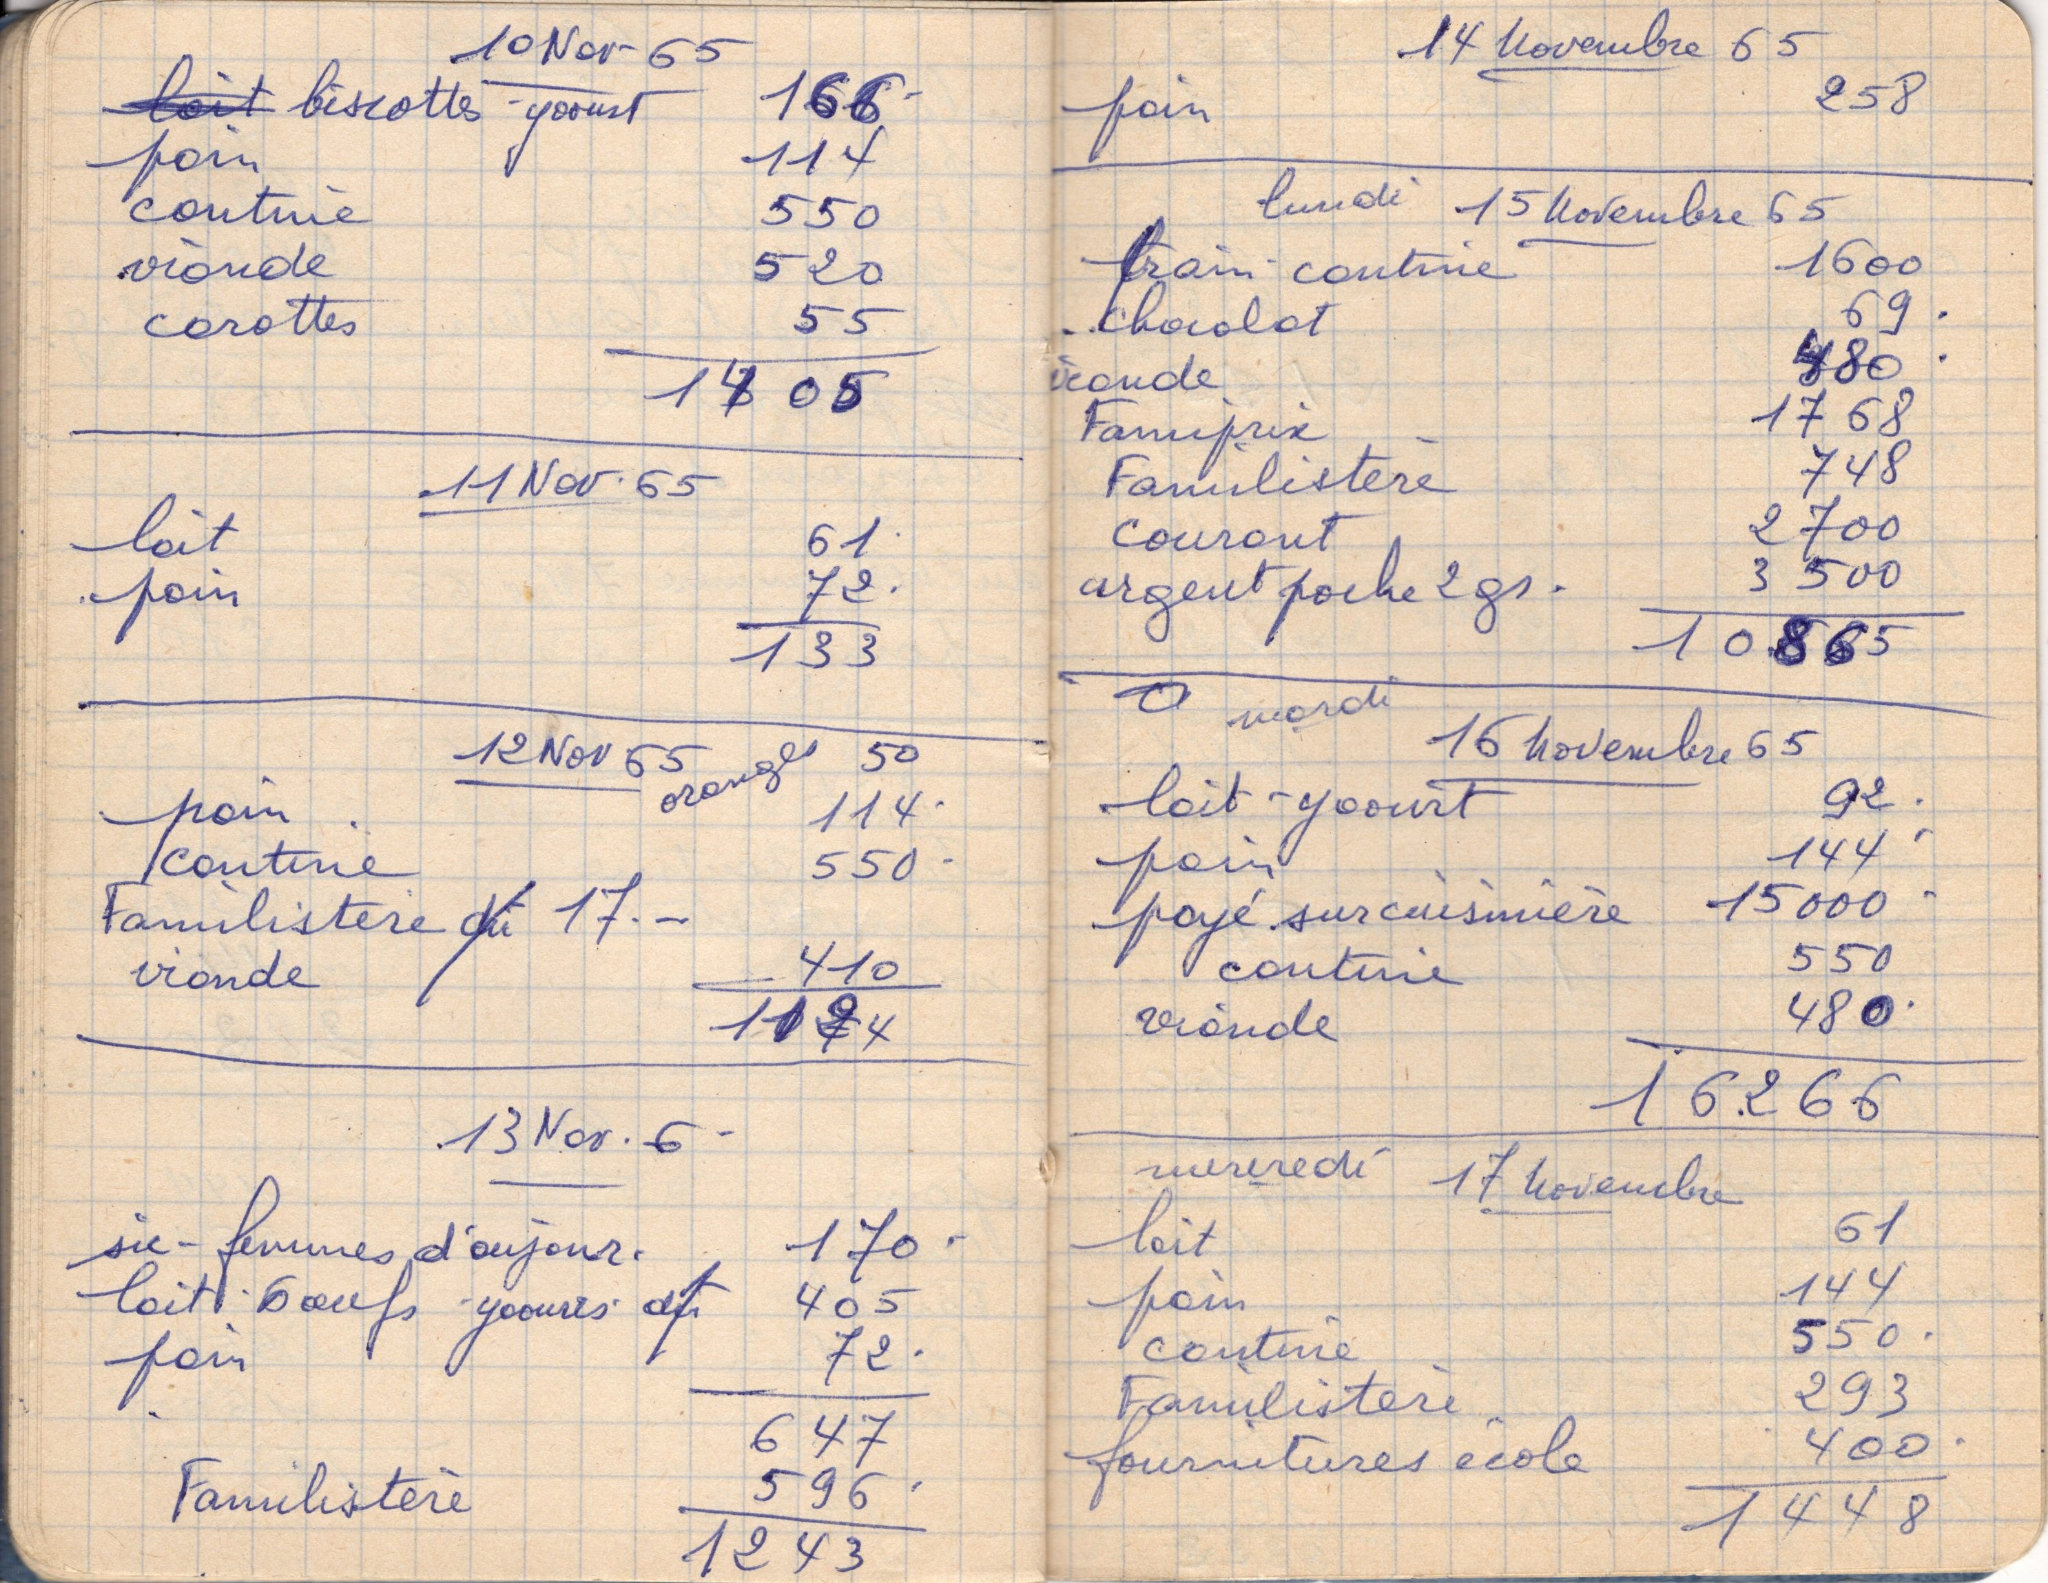 10 Nov 65
lait biscottes - yaourt 166
pain 114
cantine 550
viande 520
carottes 55
1405
11 Nov. 65
lait 61
pain 72.
133
12 Nov 65 orange 50
pain 114
cantine 550
Familistère du 17.-
viande 410
1124
13 Nov. 6-
femmes d'aujour. 170
lait. 6 oeufs yaourts 405
pain 72.
647
Familistère 596.
1243
14 Novembre 65
pain 258
lundi 15 Novembre 65
train cantine 1600
chocolat 69.
viande 480
Famiprix 1768
Familistère 748
courant 2700
argent poche 2 gs. 3500
10865
mardi
16 Novembre 65
lait - yaourt 92.
pain 144
payé sur cuisinière 15000
cantine 550
viande 480
16266
mercredi 17 Novembre
lait 61
pain 144
cantine 550.
Familistère 293
fournitures école 400
1448